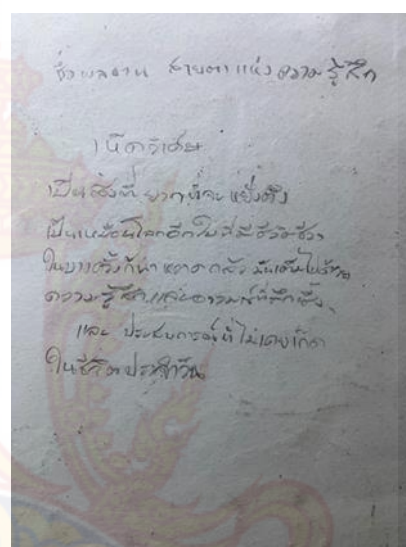 ชื่อผลงาน สายตาแห่งความรู้สึก
เห็ดวิเศษ
เป็นสิ่งที่ยากที่จะหยั่งถึง
เป็นเหมือนโลกอีกใบที่มีชีวิตชีวา
ในบางครั้งก็น่าหวาดกลัว มันเต็มไปด้วย
ความรู้สึกและอารมณ์ที่ลึกซึ้ง
และ ประสบการณ์ที่ไม่เคยเกิด
ในชีวิตประจำวัน